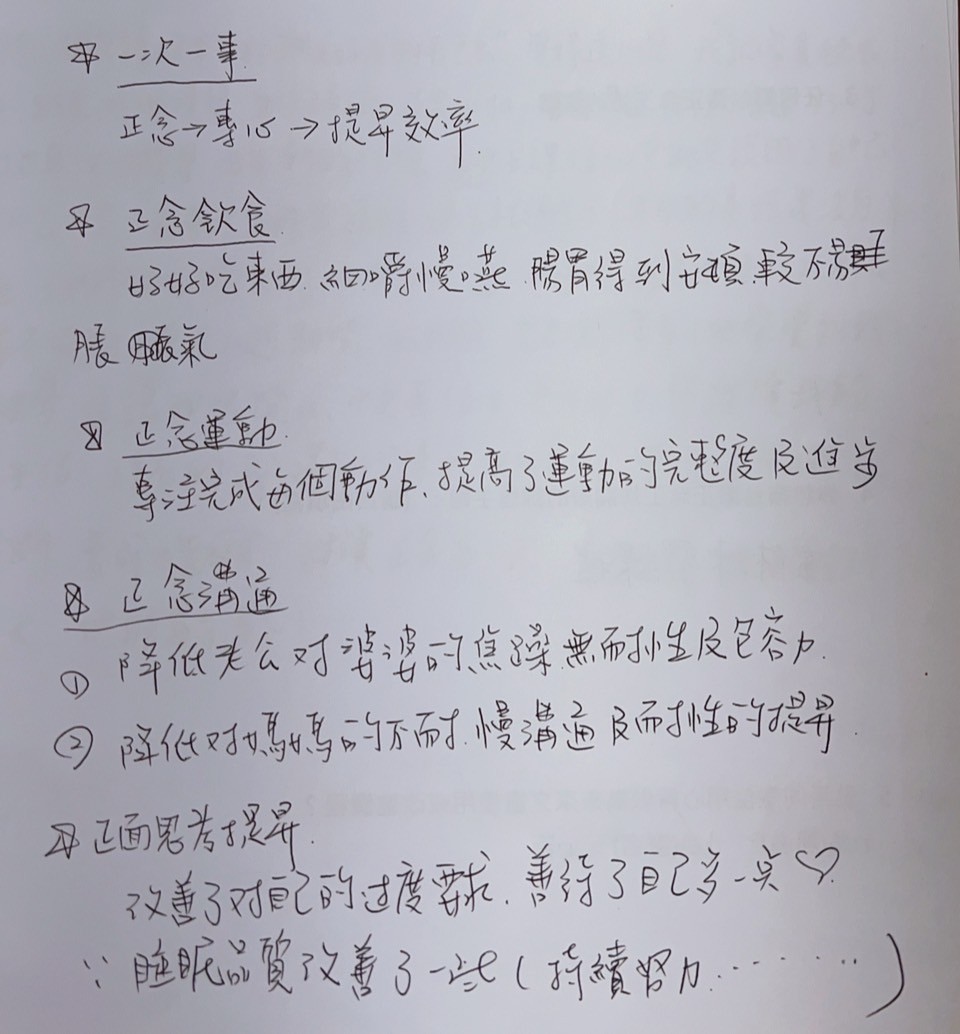 ☆ 一次一事
正念→專心→提昇效率.
☆ 正念飲食
好好吃東西. 細嚼慢嚥. 腸胃得到安頓. 較不易
脹 脹氣
☆ 正念運動.
專注完成每個動作. 提高了運動的完整度及進步
☆ 正念溝通
① 降低老公对婆婆的焦躁無耐性及包容力.
② 降低对媽媽的不耐. 慢溝通及耐性的提昇.
☆ 正面思考提昇.
改善了对自己的过度要求. 善待了自己多一点♡.
∵ 睡眠品質改善了一些(持續努力.........)